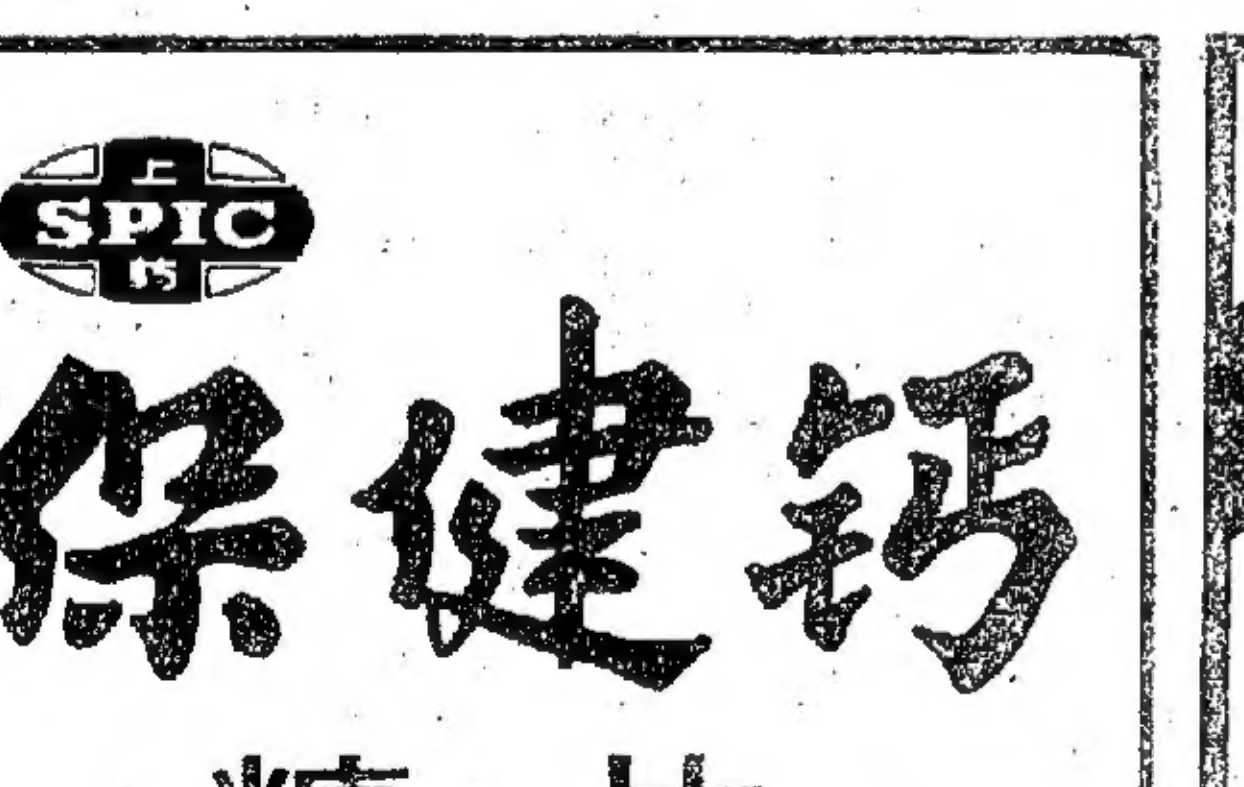 上
SPIC
保健钙